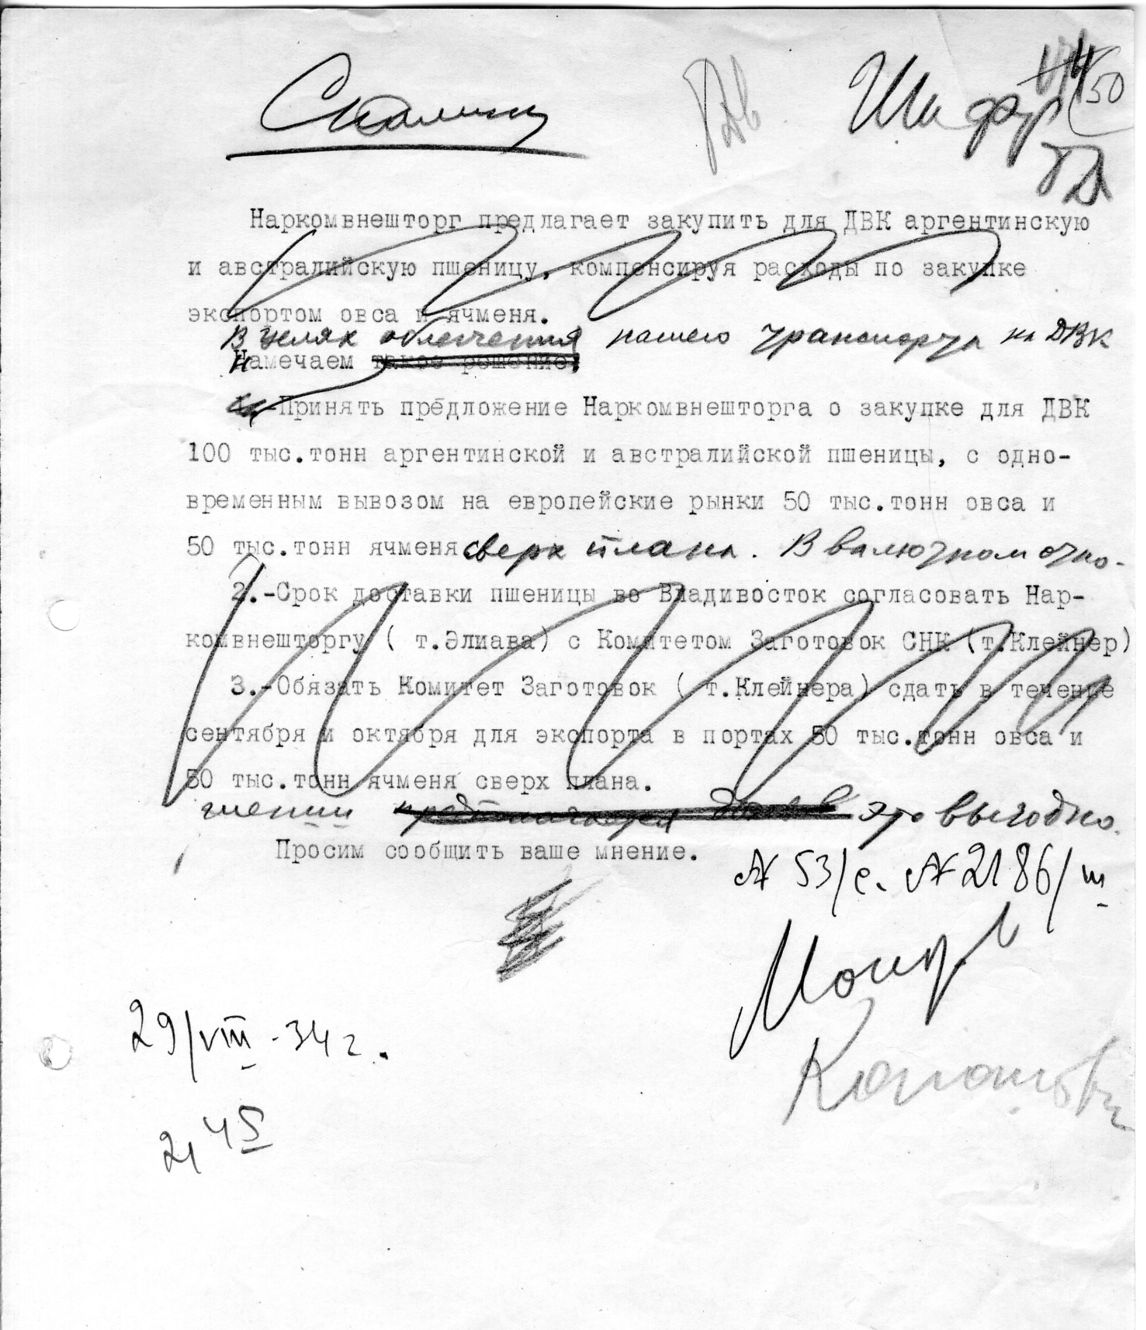 Сталину
Шифр
50
Наркомвнешторг предлагает закупить для ДВК аргентинскую
и австралийскую пшеницу, компенсируя расходы по закупке
экспортом овса и ячменя.
В целях облегчения нашего транспорта на ДВК
Намечаем такое решение:
Принять предложение Наркомвнешторга о закупке для ДВК
100 тыс.тонн аргентинской и австралийской пшеницы, с одно-
временным вывозом на европейские рынки 50 тыс.тонн овса и
50 тыс.тонн ячменя сверх плана. В валютном отно-
2.-Срок доставки пшеницы во Владивосток согласовать Нар-
комвнешторгу ( т.Элиава) с Комитетом Заготовок СНК (т.Клейнер)
3.-Обязать Комитет Заготовок ( т.Клейнера) сдать в течение
сентября и октября для экспорта в портах 50 тыс.тонн овса и
50 тыс.тонн ячменя сверх плана.
шении это выгодно.
Просим сообщить ваше мнение.
№ 53/с. № 2186/ш
Молотов
Каганович
29/VIII-34 г.
21 45